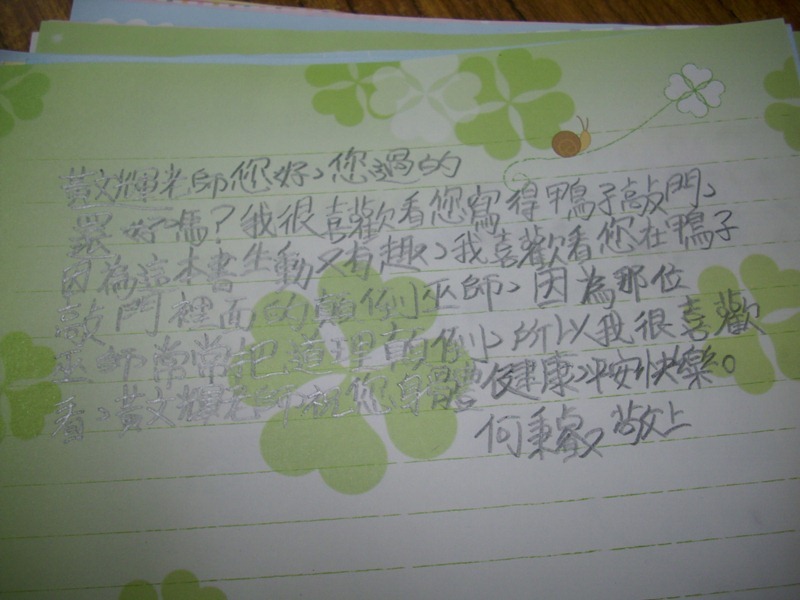 黃文輝老師您好、您過的
還好嗎？我很喜歡看您寫得鴨子敲門、
因為這本書生動又有趣、我喜歡看您在鴨子
敲門裡面的顛倒巫師、因為那位
巫師常常把道理顛倒、所以我很喜歡
看、黃文輝老師祝您身體健康、平安快樂。
何秉叡 敬上